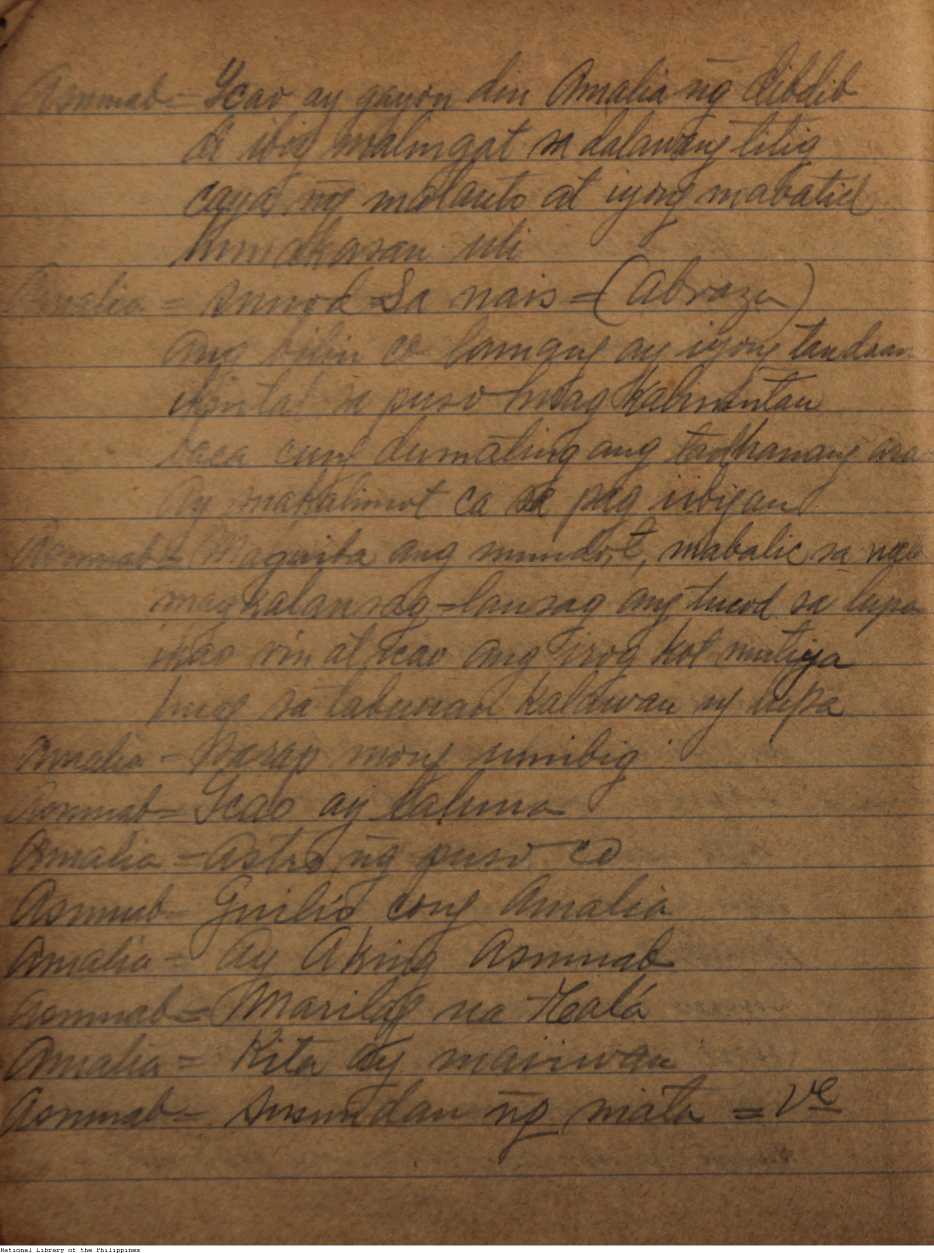 Asmmab = Icao ay gayon din Amalia n̄g dibdib
di ibig malingat sa dalawang titig
caya n̄g matanto at iyong mabatid
uli
Amalia = sunod sa nais = (Abraza)
ang bilin co lamang ay iyong tandaan
ikintal sa puso huag kalimutan
baca cung dumating ang takhanang arao
ay makalimot ca sa pag iibigan
Asmmab = Maguiba ang mundo,t, mabalic sa wala
magkalansag-lansag ang tucod sa lupa
ikao rin at icao ang irog kot mutiya
sa tabunan kalawan ay lupa
Amalia - Sarap mong umibig
Asmmab = Icao ay
Amalia - Astro n̄g puso co
Asmmab - Guiliw cong Amalia
Amalia = Ay Aking Asmmab
Asmmab = Marilag na Hala
Amalia = Kita ay maiiwan
Asmmab = Susundan n̄g mata = Ve
National Library of the Philippines